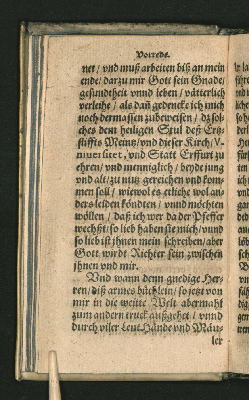 Vorrede.
net / vnd muß arbeiten biß an mein
ende / darzu mir Gott sein Gnade /
gesundtheit vnnd leben / vätterlich
verleihe / als dañ gedencke ich mich
noch dermassen zubeweisen / dz sol-
ches dem heiligen Stul deß Ertz-
stiffts Meintz / vnd dieser Kirch / V-
niuersitet, vnd Statt Erffurt zu
ehren / vnd menniglich / beyde jung
vnd alt / zu nutz gereichen vnd kom-
men soll / wiewol es etliche wol an-
ders leiden köndten / vnnd möchten
wöllen / daß ich wer da der Pfeffer
wechßt / so lieb haben sie mich / vnnd
so lieb ist jhnen mein schreiben / aber
Gott wirdt Richter sein zwischen
jhnen vnd mir.
Vnd wann denn gnedige Her-
ren / diß armes büchlein / so jetzt von
mir in die weitte Welt abermahl
zum andern truck außgehet / vnnd
durch viler Leut Hände vnd Mäu-
ler